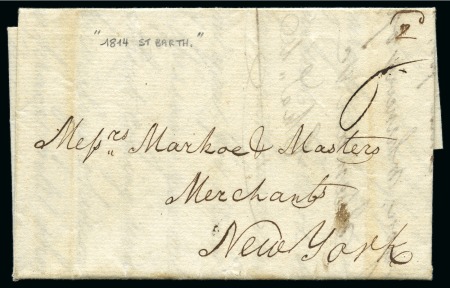 "1814 ST BARTH."
2
Messrs Markoe & Masters
Merchants
New York